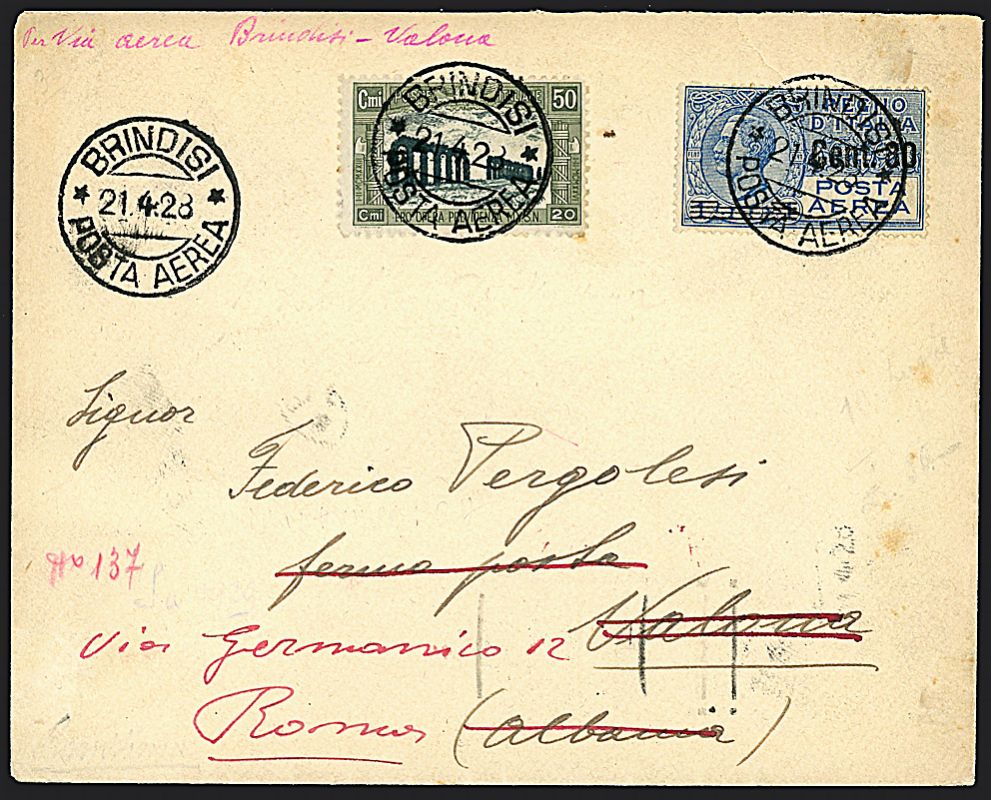 Per Via aerea Brindisi - Valona
BRINDISI
21.4.28
POSTA AEREA
Cmi 50
BRINDISI
21.4.28
POSTA AEREA
Cmi 20
PRO OPERA PREVIDENZA M.V.S.N.
REGNO
D'ITALIA
Cent. 80
POSTA
AEREA
BRINDISI
POSTA AEREA
Signor
Federico Pergolesi
fermo posta
Valona
No 137
Via Germanico 12
Roma (Albania)